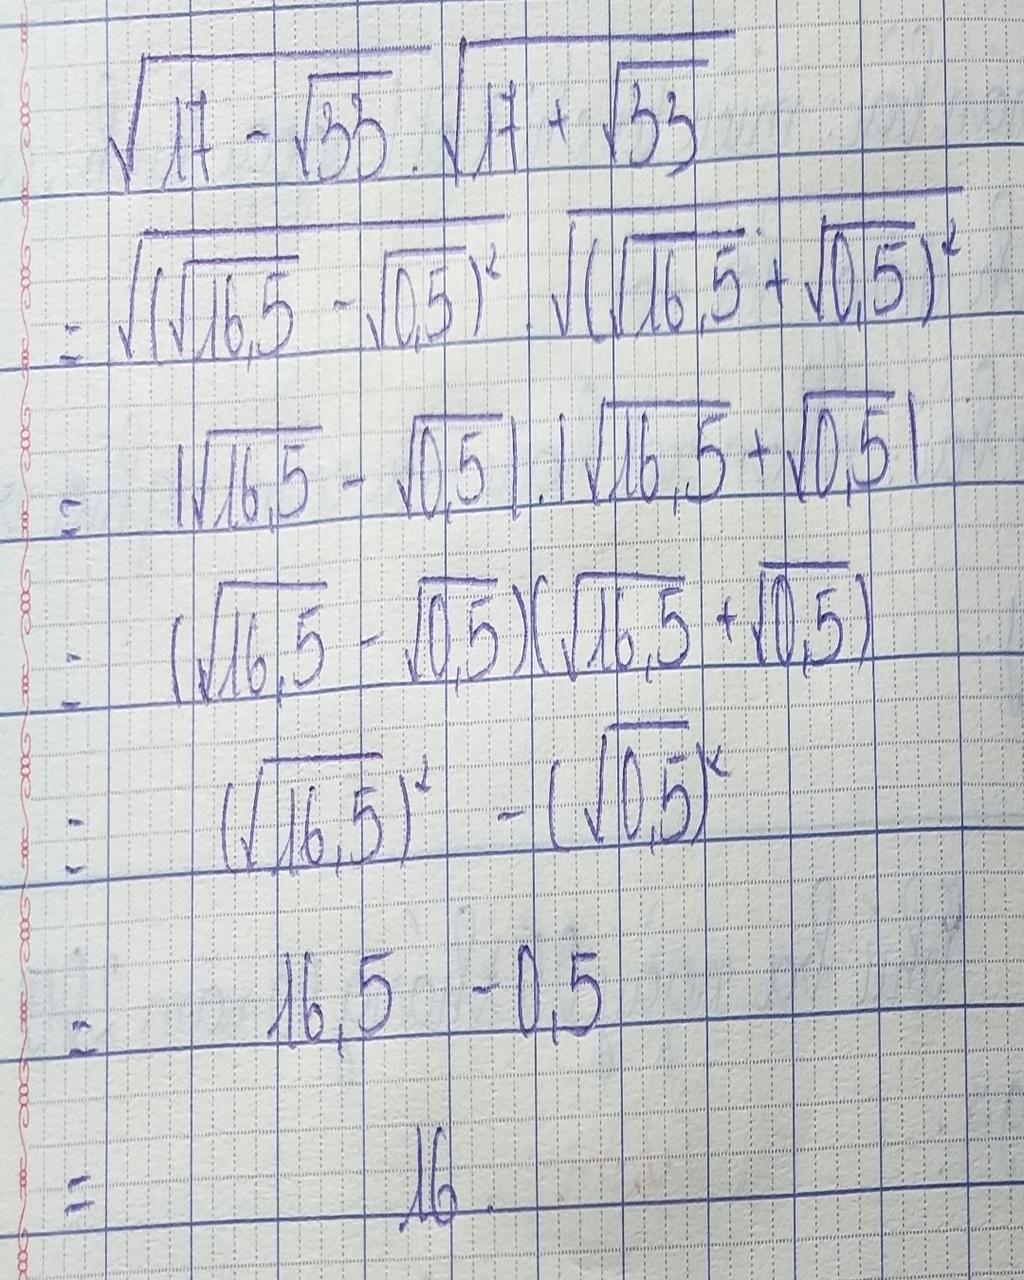 √(17 - √33) . √(17 + √33)
= √((√16,5 - √0,5)²) . √((√16,5 + √0,5)²)
= |√16,5 - √0,5| . |√16,5 + √0,5|
= (√16,5 - √0,5)(√16,5 + √0,5)
= (√16,5)² - (√0,5)²
= 16,5 - 0,5
= 16.